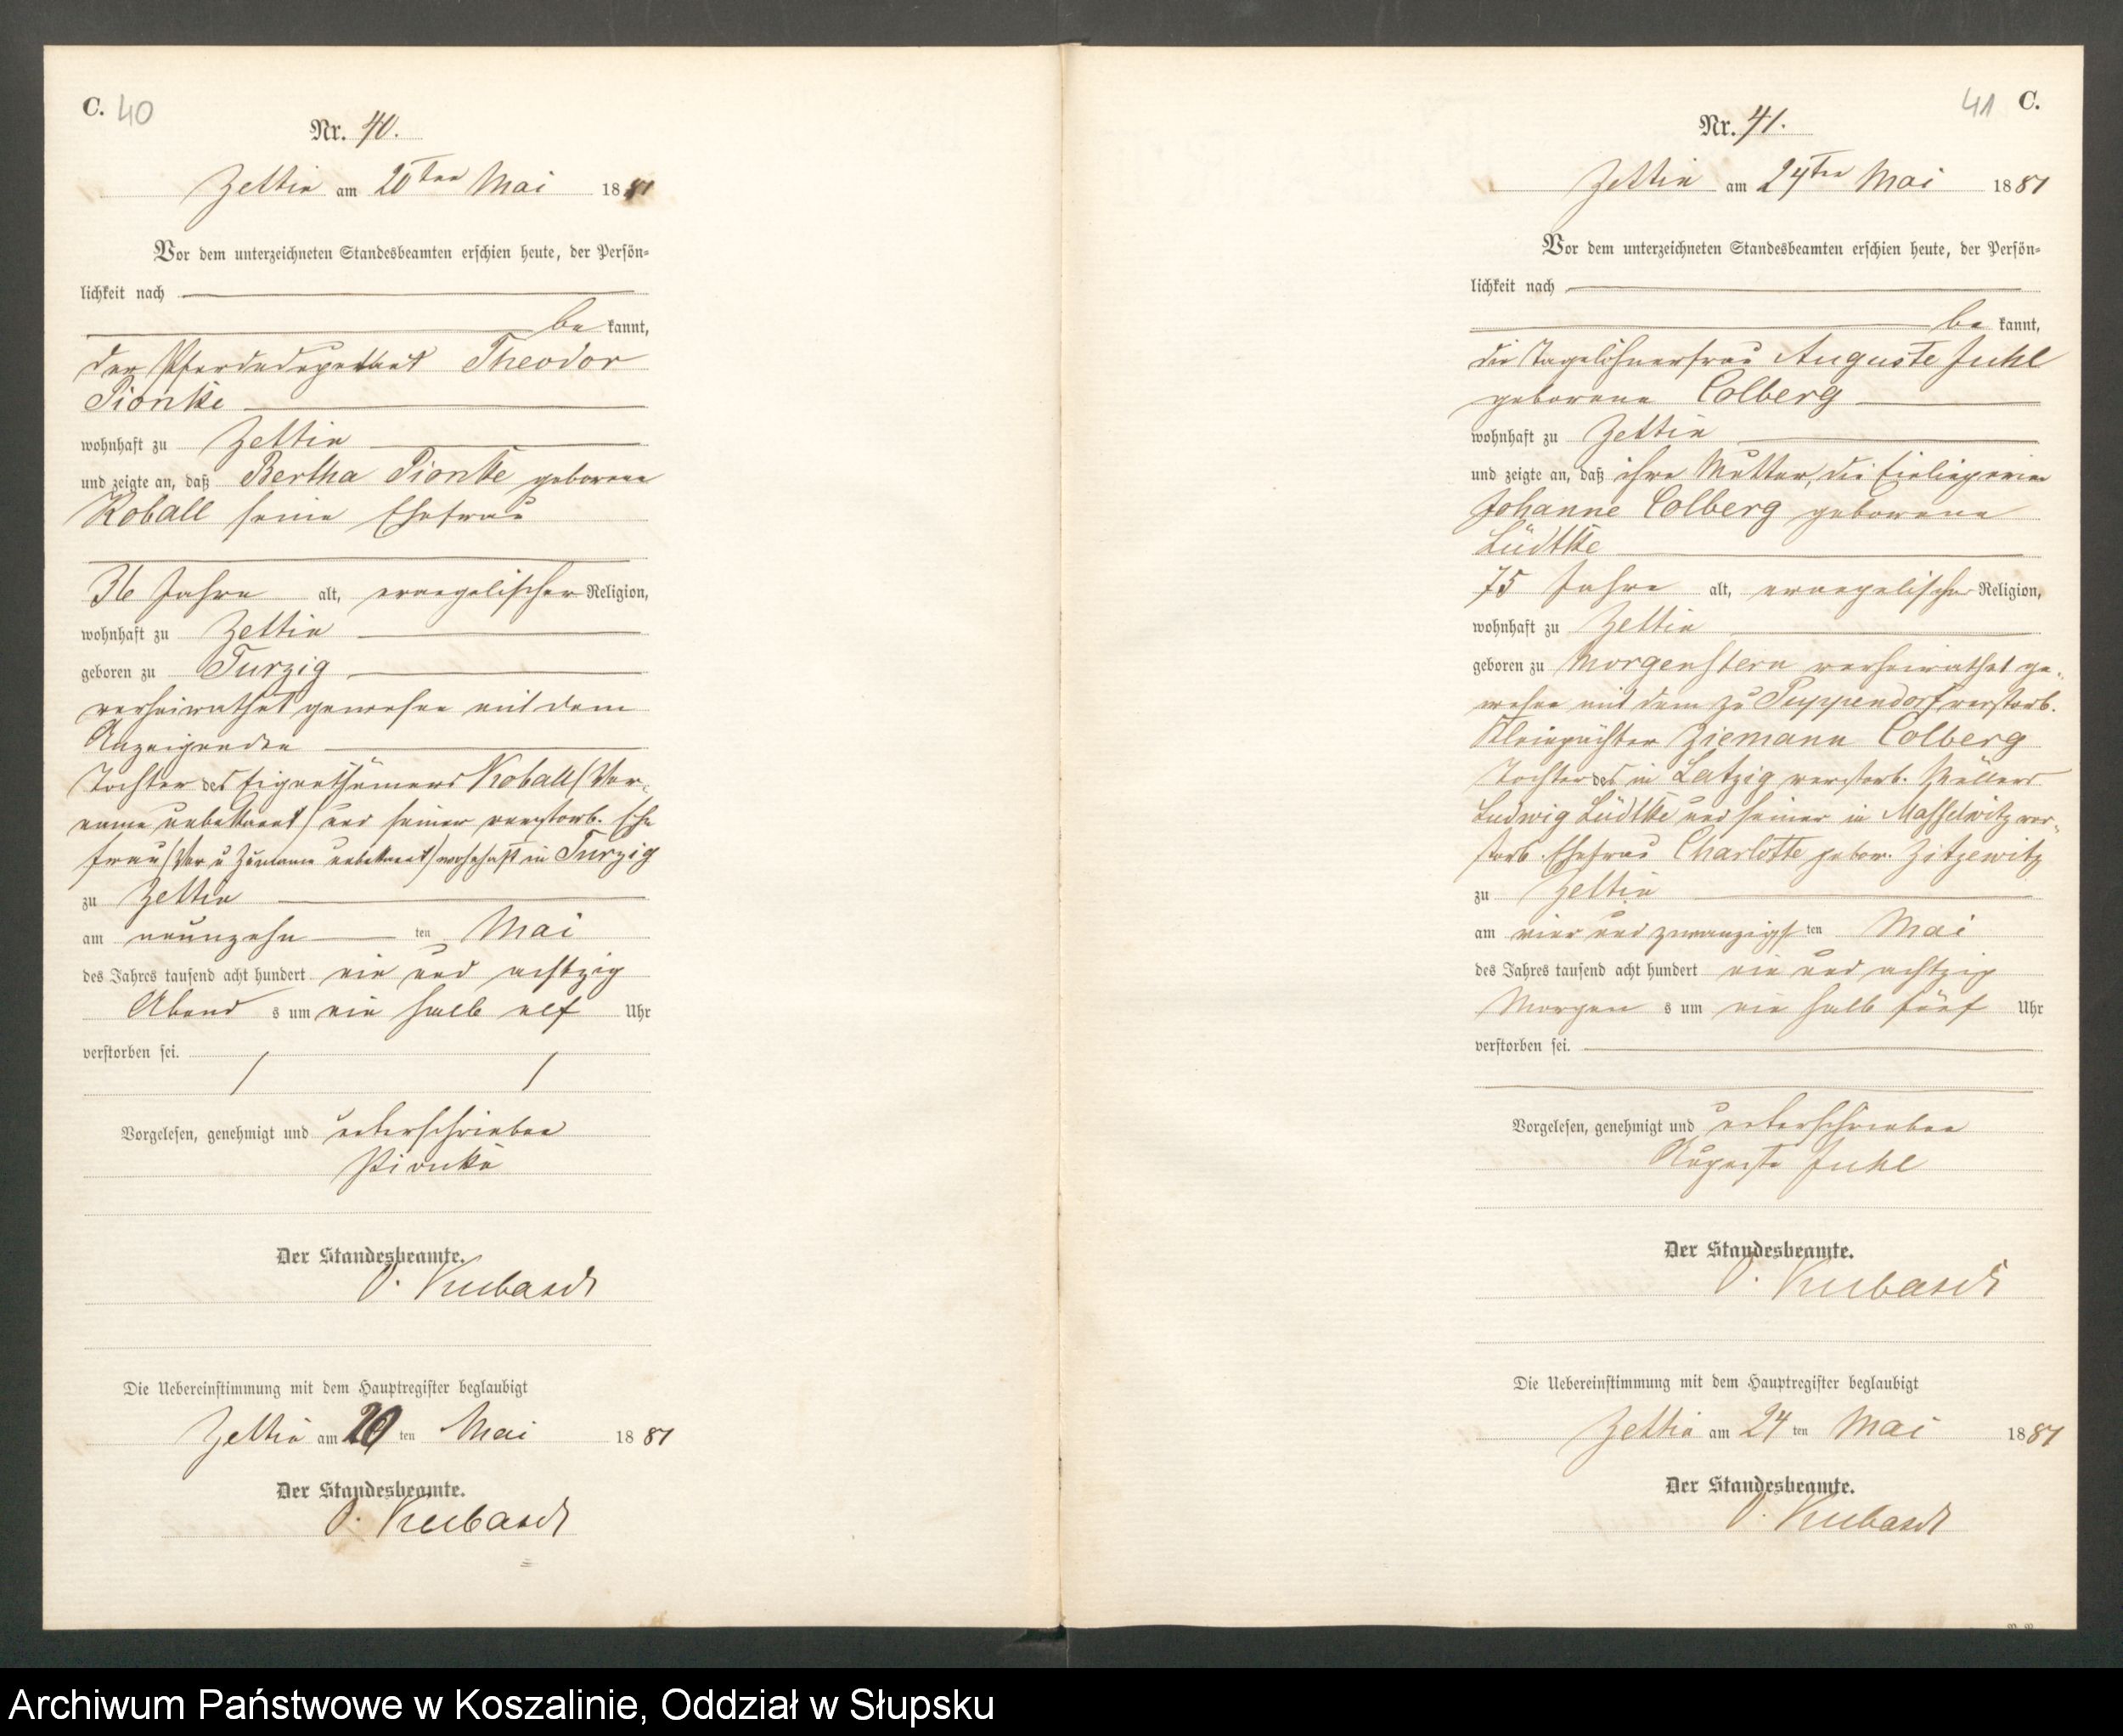 C. 40
Nr. 40.
Zettin am 20ten Mai 1881
Vor dem unterzeichneten Standesbeamten erschien heute, der Persön-
lichkeit nach
be kannt,
der Theodor
Pionke
wohnhaft zu Zettin
und zeigte an, daß Bertha Pionke geborene
Koball seine Ehefrau
36 Jahre alt, evangelischer Religion,
wohnhaft zu Zettin
geboren zu Turzig
verheirathet gewesen mit dem
Anzeigenden
Tochter des Eigenthümers Koball (Vor-
name unbekannt) und seiner verstorb. Ehe
frau (Vor u Zuname unbekannt) wohnhaft in Turzig
zu Zettin
am neunzehn ten Mai
des Jahres tausend acht hundert ein und achtzig
Abend s um ein halb elf Uhr
verstorben sei.
Vorgelesen, genehmigt und unterschrieben
Pionke
Der Standesbeamte.
Die Uebereinstimmung mit dem Hauptregister beglaubigt
Zettin am 20 ten Mai 1881
Der Standesbeamte.
41 C.
Nr. 41.
Zettin am 24ten Mai 1881
Vor dem unterzeichneten Standesbeamten erschien heute, der Persön-
lichkeit nach
be kannt,
die Tagelöhnerfrau Auguste Juhl
geborene Colberg
wohnhaft zu Zettin
und zeigte an, daß ihre Mutter, die Einliegerin
Johanne Colberg geborene
Lüdtke
75 Jahre alt, evangelischer Religion,
wohnhaft zu Zettin
geboren zu Morgenstern verheirathet ge-
wesen mit dem zu Puppendorf verstorb.
Kleinpächter Ziemann Colberg
Tochter des in Latzig verstorb. Müllers
Ludwig Lüdtke und seiner in Masselwitz ver-
storb. Ehefrau Charlotte gebor. Zitzewitz
zu Zettin
am vier und zwanzigs ten Mai
des Jahres tausend acht hundert ein und achtzig
Morgen s um ein halb fünf Uhr
verstorben sei.
Vorgelesen, genehmigt und unterschrieben
Auguste Juhl
Der Standesbeamte.
Die Uebereinstimmung mit dem Hauptregister beglaubigt
Zettin am 24 ten Mai 1881
Der Standesbeamte.
Archiwum Państwowe w Koszalinie, Oddział w Słupsku